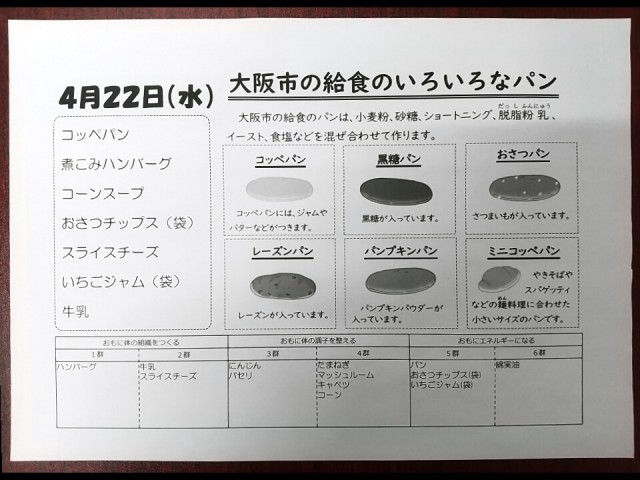 4月22日(水)
大阪市の給食のいろいろなパン
コッペパン
煮こみハンバーグ
コーンスープ
おさつチップス（袋）
スライスチーズ
いちごジャム（袋）
牛乳
大阪市の給食のパンは、小麦粉、砂糖、ショートニング、脱脂粉乳、
だっしふんにゅう
イースト、食塩などを混ぜ合わせて作ります。
コッペパン
コッペパンには、ジャムや
バターなどがつきます。
黒糖パン
黒糖が入っています。
おさつパン
さつまいもが入っています。
レーズンパン
レーズンが入っています。
パンプキンパン
パンプキンパウダーが
入っています。
ミニコッペパン
やきそばや
スパゲッティ
などの麺料理に合わせた
めん
小さいサイズのパンです。
おもに体の組織をつくる
おもに体の調子を整える
おもにエネルギーになる
1群 2群 3群 4群 5群 6群
ハンバーグ 牛乳 にんじん たまねぎ パン 綿実油
スライスチーズ パセリ マッシュルーム おさつチップス(袋)
キャベツ いちごジャム(袋)
コーン